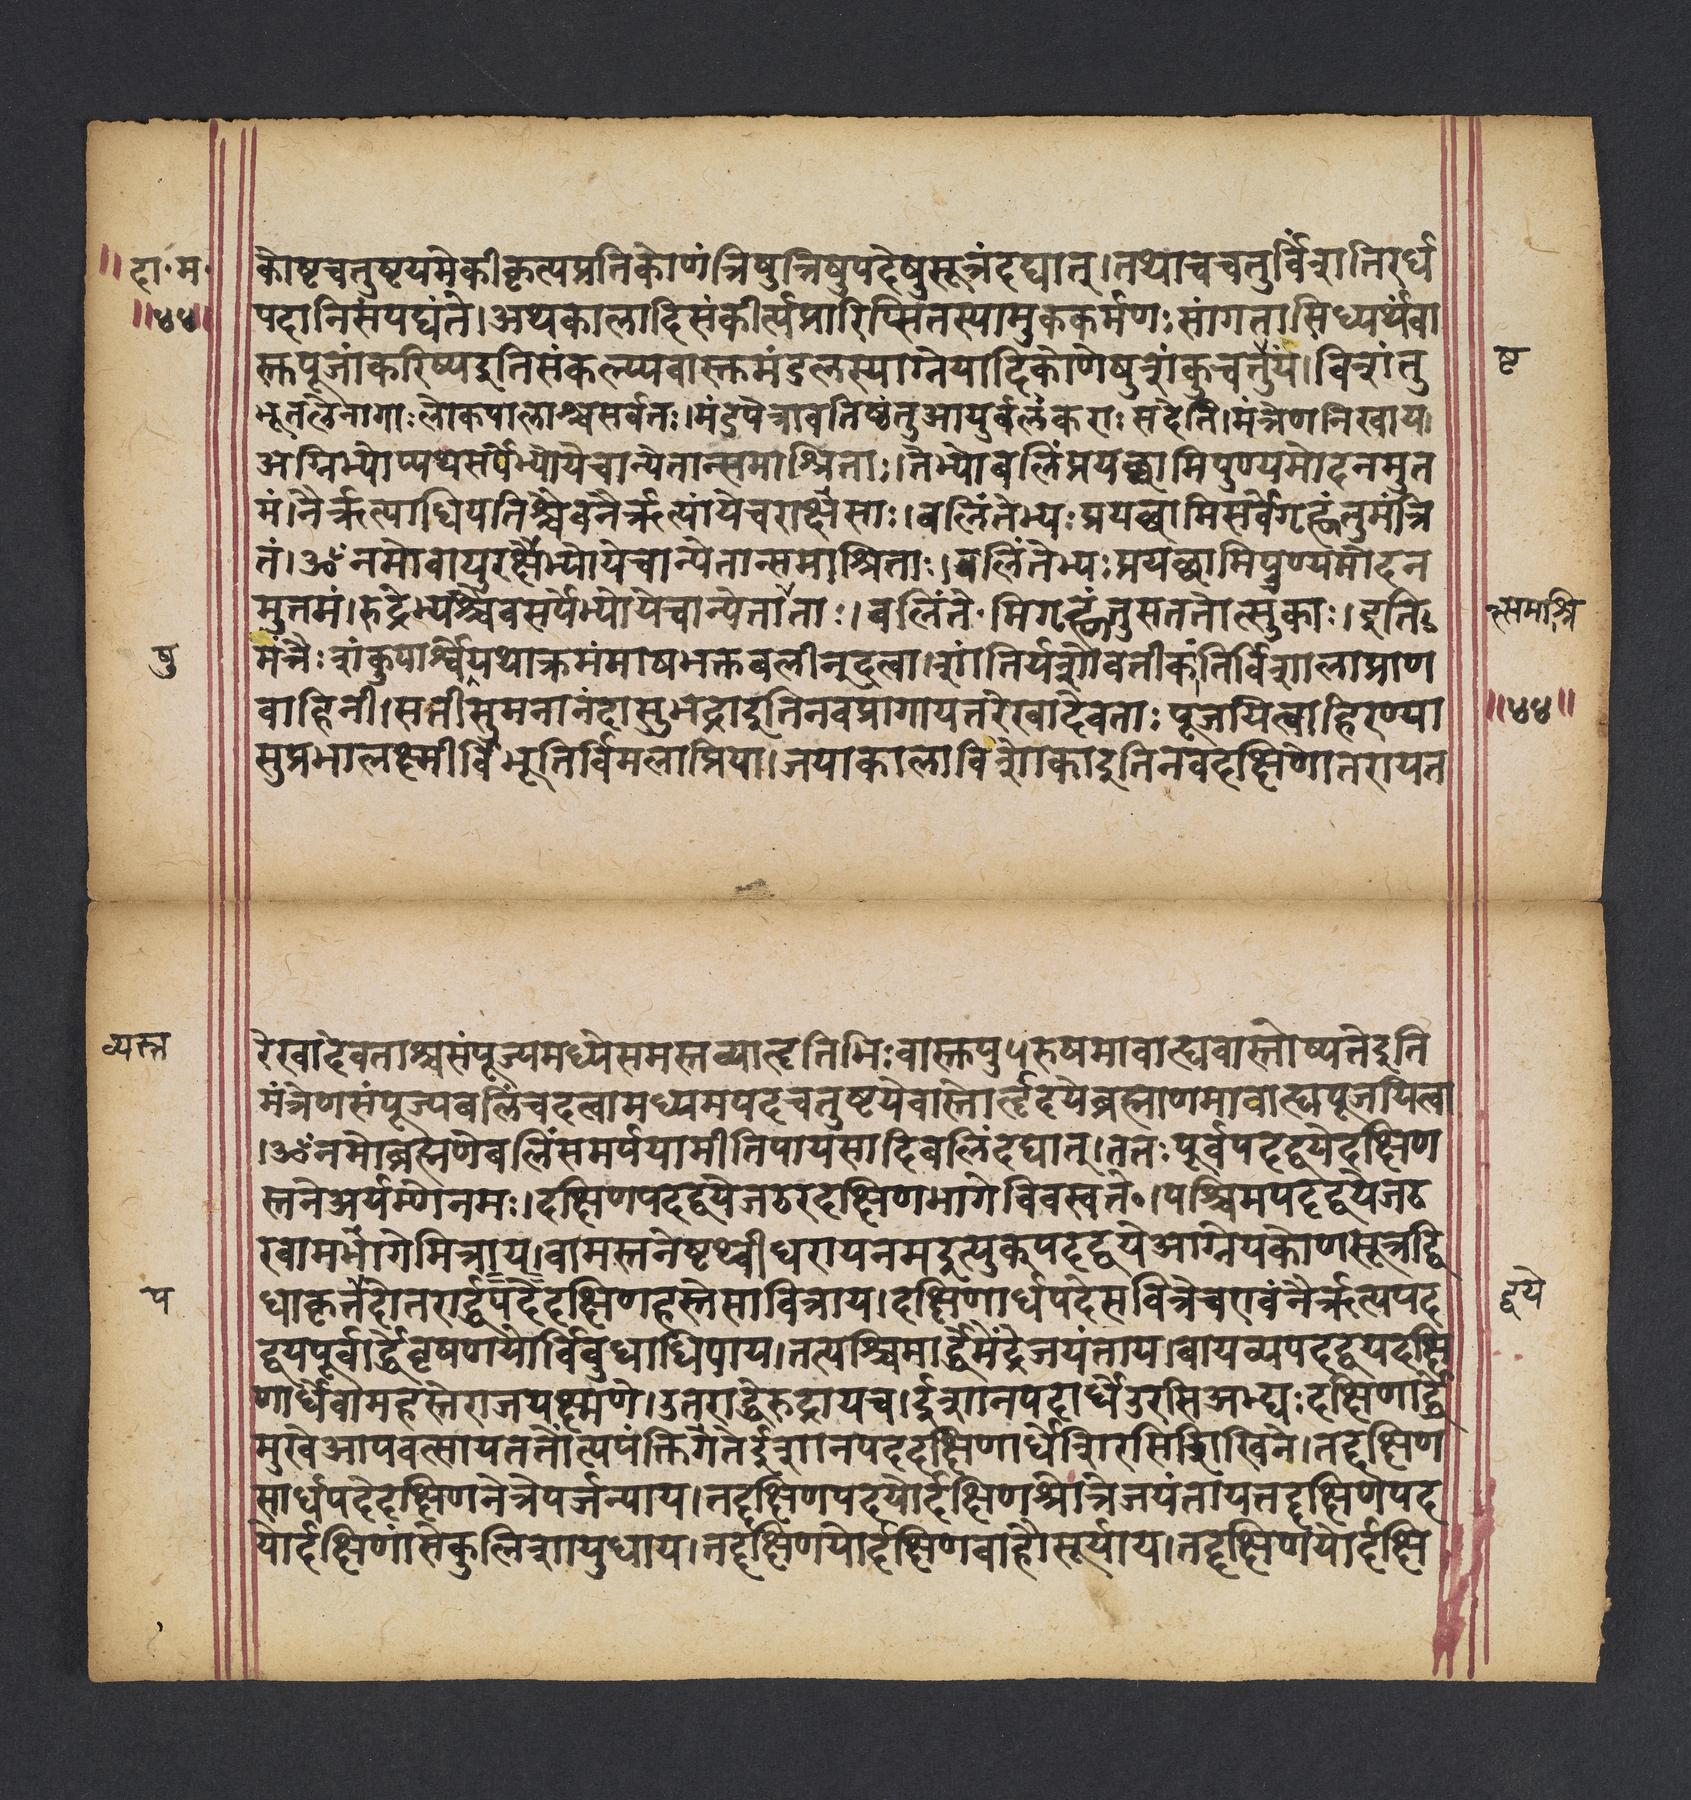 दा॰म॰
॥४४॥
कोष्टचतुष्टयमेकीकृत्यप्रतिकोणंत्रिषुत्रिषुपदेषुसूत्रंदद्यात्।तथाचचतुर्विंशतिरर्ध
पदानिसंपद्यंते।अथकालादिसंकीर्त्यप्रारिप्सितस्यामुककर्मणःसांगतासिध्यर्थंवा
स्तुपूजांकरिष्यइतिसंकल्प्यवास्तुमंडलस्याग्नेयादिकोणेषुशंकुचतुयं।विशंतु
ष्ट
भूतलेनागाःलोकपालाश्चसर्वतः।मंडपेत्रावतिष्ठंतुआयुर्बलंकराःसदेति।मंत्रेणनिखाय
अग्निभ्योप्यथसर्पेभ्योयेचान्येतान्समाश्रिताः।तेभ्योबलिंप्रयछामिपुण्यमोदनमुत
मं।नैर्ऋत्याधिपतिश्चैवनैर्ऋत्यांयेचराक्षसाः।बलिंतेभ्यःप्रयछामिसर्वेगृह्णंतुमंत्रि
तं।ॐनमोवायुरक्षेभ्योयेचान्येतान्समाश्रिताः।बलिंतेभ्यःप्रयछामिपुण्यमोदन
मुत्तमं।रुद्रेभ्यश्चैवसर्पेभ्योयेचान्येताताः।बलिंते॰मिगृह्णंतुसततोत्सुकाः।इति
न्समाश्रि
मंत्रैःशंकुपार्श्वेयथाक्रमंमाषभक्तबलीन्दत्वा।शांतिर्यशोवतीकांतिर्विशालाप्राण
षु
वाहिनी।सतीसुमनानंदासुभद्राइतिनवप्रागायतरेखादेवताःपूजयित्वाहिरण्या
॥४४॥
सुप्रभालक्ष्मीर्विभूतिर्विमलाप्रिया।जयाकालाविशोकाइतिनवदक्षिणोतरायत
व्यस्त
रेखादेवताश्चसंपूज्यमध्येसमस्तव्याहृतिभिःवास्तुपुरुषमावाह्यवास्तोष्पतेइति
मंत्रेणसंपूज्यबलिंचदत्वामध्यमपदचतुष्टयेवास्तोर्हृदयेब्रह्माणमावाह्यपूजयित्वा
।ॐनमोब्रह्मणेबलिंसमर्पयामीतिपायसादिबलिंदद्यात्।ततःपूर्वपदद्वयेदक्षिण
स्तनेअर्यम्णेनमः।दक्षिणपदद्वयेजठरदक्षिणभागेविवस्वते॰।पश्चिमपदद्वयेजठ
रवामभागेमित्राय।वामस्तनेपृथ्वीधरायनमइत्युक्पदद्वयेआग्नेयकोणसूत्रद्वि
धाकृतेदोतरार्द्धपदेदक्षिणहस्तेसावित्राय।दक्षिणार्धपदेसवित्रेचएवंनैर्ऋत्यपद
प
द्वये
द्वयपूर्वार्द्धेवृषणयोर्विबुधाधिपाय।तत्पश्चिमार्द्धेमेंद्रेजयंताय।वायव्यपदद्वयदक्षि
णार्धेवामहस्तेराजयक्ष्मणे।उतरार्द्धेरुद्रायच।ईशानपदार्धेउरसिअभ्द्यःदक्षिणार्द्धे
मुखेआपवत्सायततोंत्यपंक्तिगतेईशानपददक्षिणार्धेशिरसिशिखिने।तद्दक्षिण
सार्धपदेदक्षिणनेत्रेपर्जन्याय।तद्दक्षिणपदयोर्दक्षिणश्रोत्रेजयंतायतद्दक्षिणपद
योर्दक्षिणांसेकुलिशायुधाय।तद्दक्षिणयोर्दक्षिणबाहौसूर्याय।तद्दक्षिणयोर्दक्षि